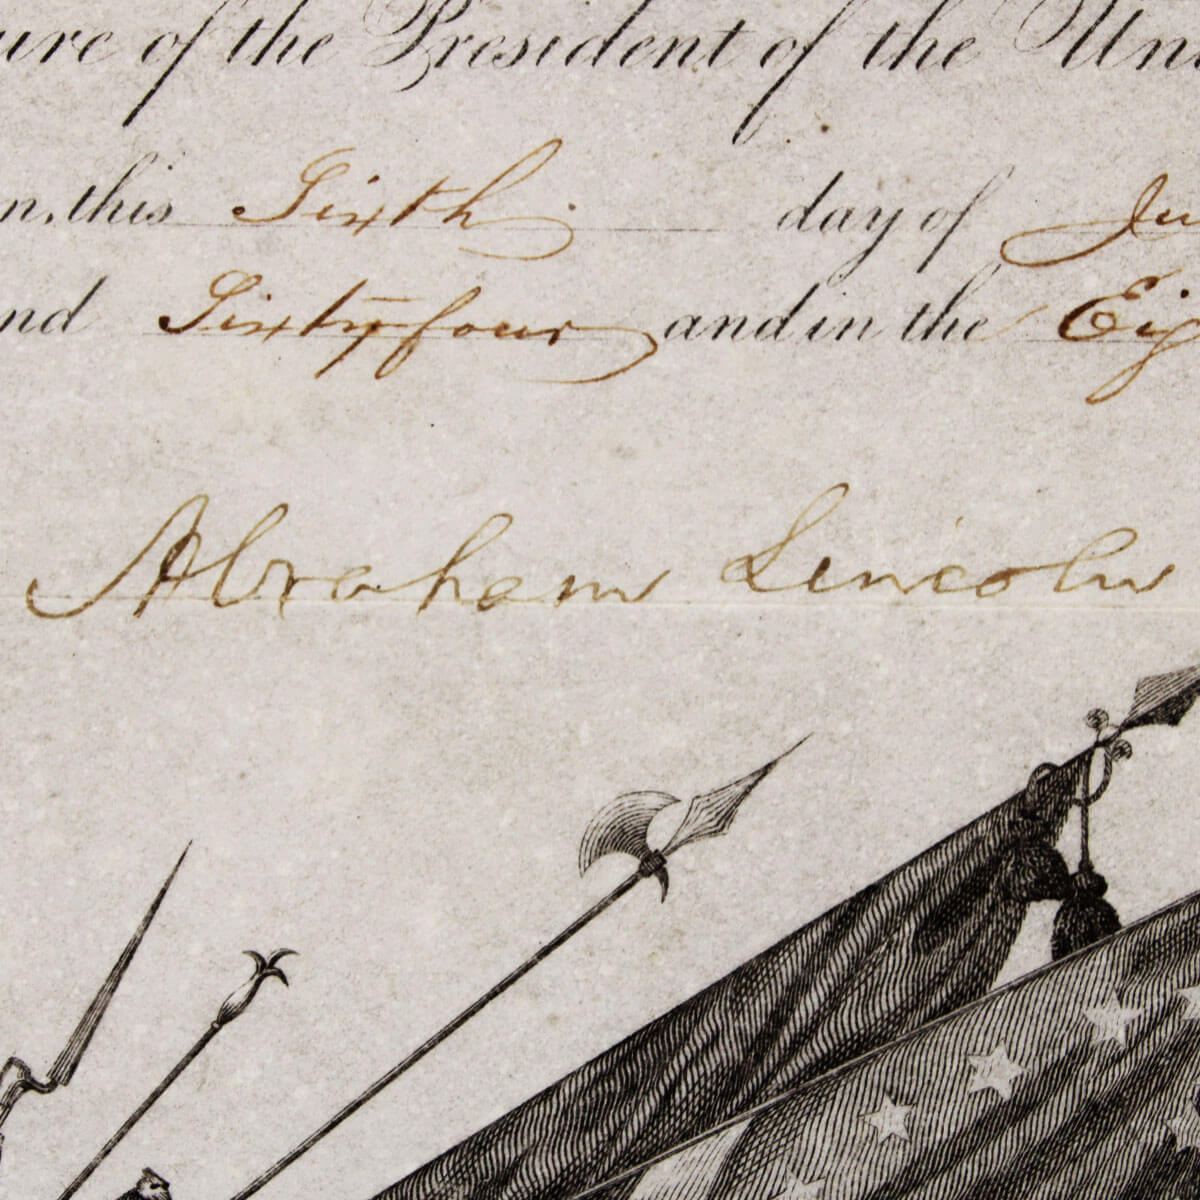 ure of the President of the Uni
n, this Sixth day of Ju
nd Sixty four and in the Eig
Abraham Lincoln